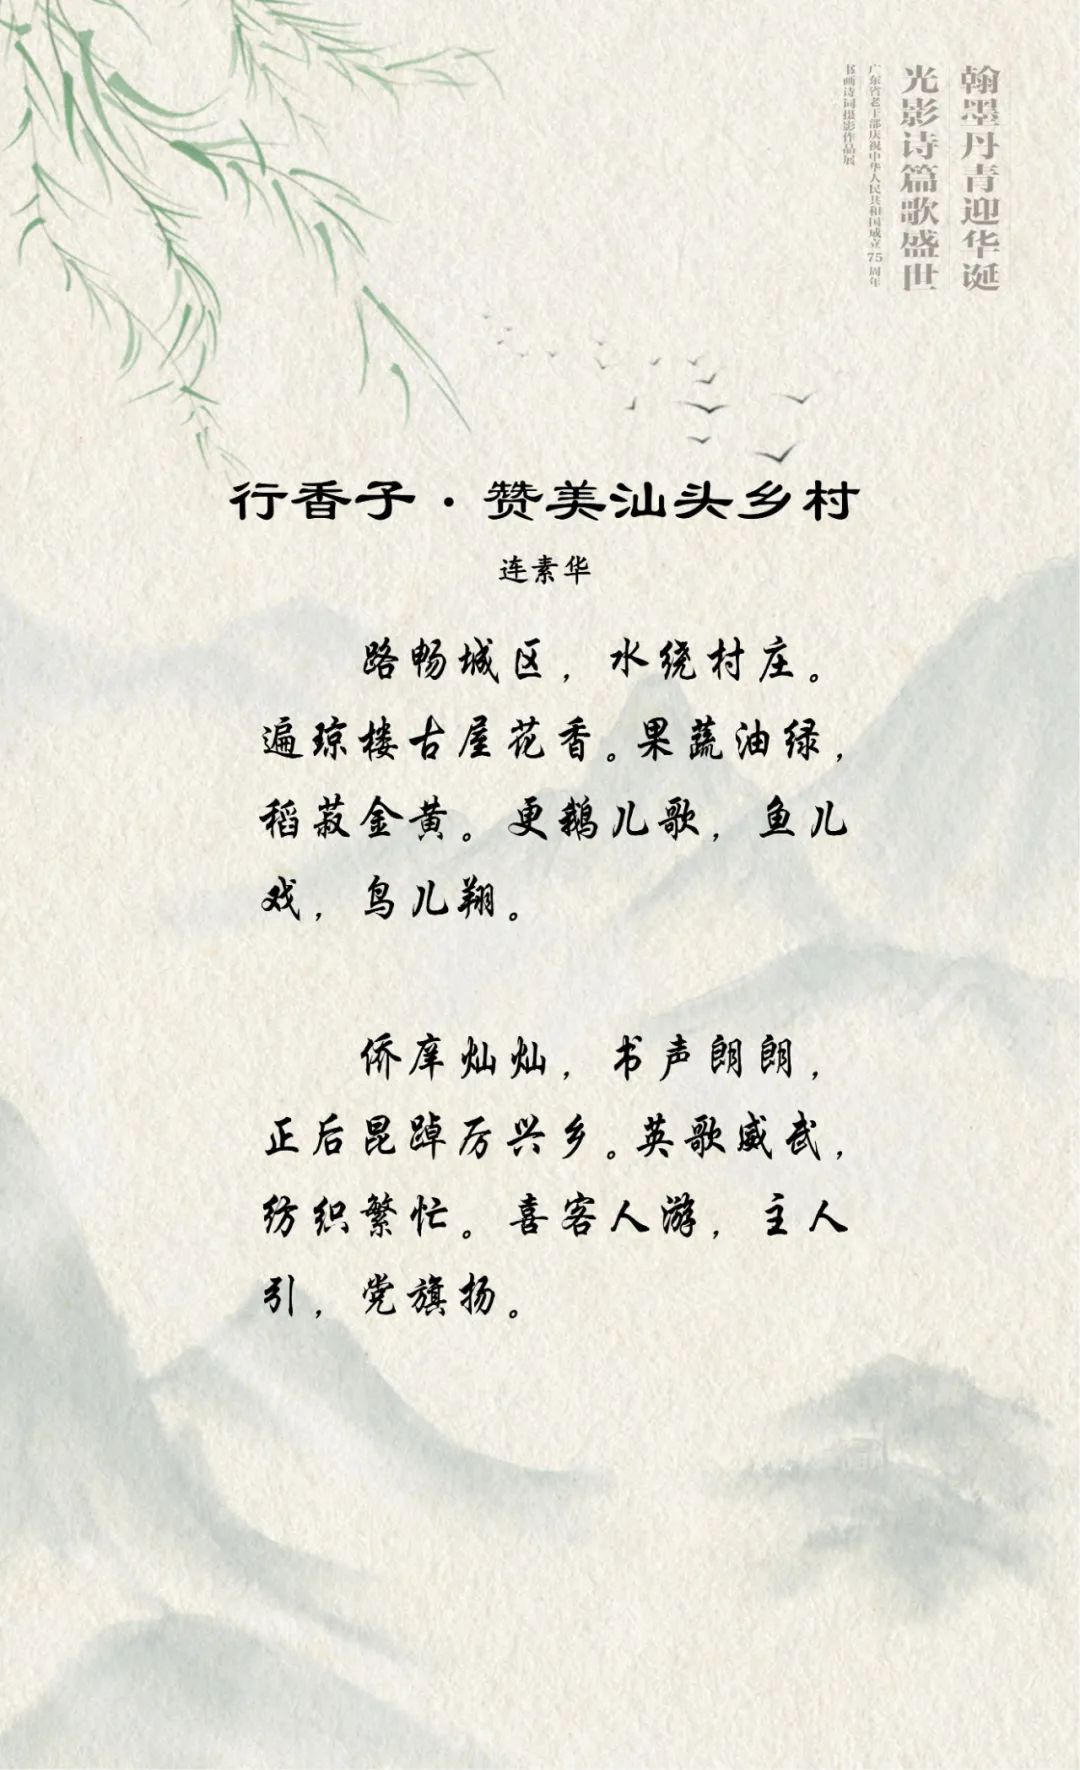 翰墨丹青迎华诞
光影诗篇歌盛世
广东省老干部庆祝中华人民共和国成立75周年
书画诗词摄影作品展
行香子·赞美汕头乡村
连素华
路畅城区，水绕村庄。
遍琼楼古屋花香。果蔬油绿，
稻菽金黄。更鹅儿歌，鱼儿
戏，鸟儿翔。
侨庠灿灿，书声朗朗，
正后昆踔厉兴乡。英歌威武，
纺织繁忙。喜客人游，主人
引，党旗扬。